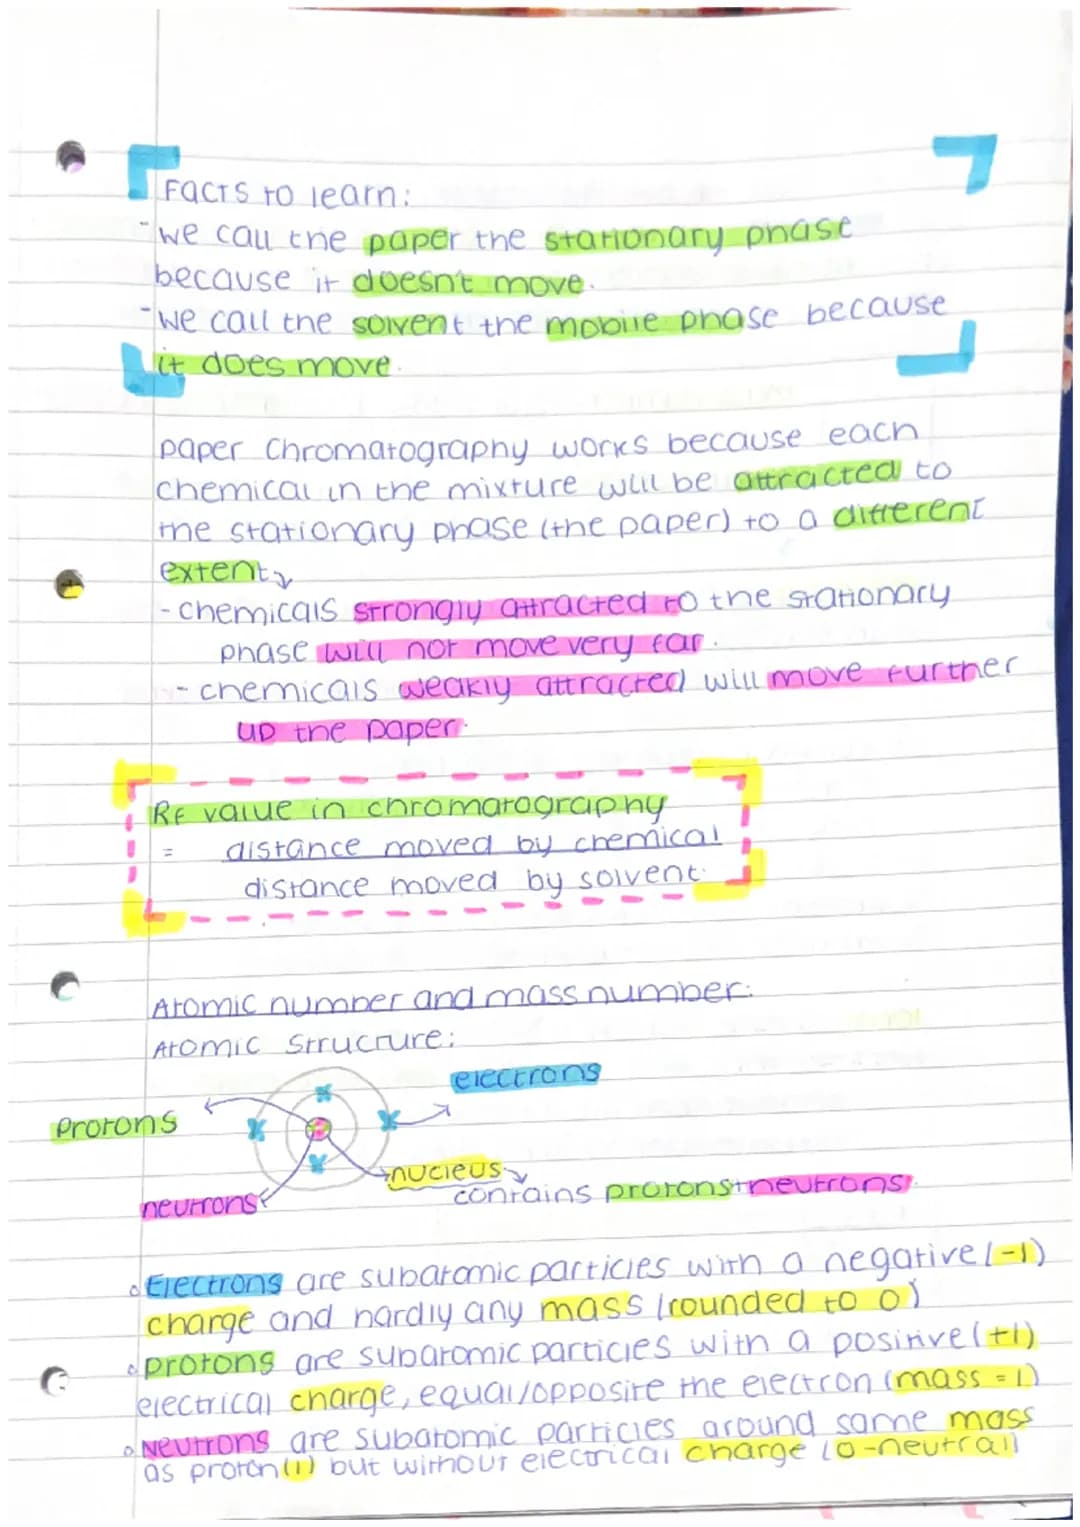 Facts to learn:
- we call the paper the stationary phase
because it doesn't move.
- we call the solvent the mobile phase because
it does move.
paper chromatography works because each
chemical in the mixture will be attracted to
the stationary phase (the paper) to a different
extent
- chemicals strongly attracted to the stationary
phase will not move very far.
- chemicals weakly attracted will move further
up the paper.
RF value in chromatography
= distance moved by chemical
distance moved by solvent.
Atomic number and mass number:
Atomic Structure:
electrons
Protons
nucleus
contains protons+neutrons.
neutrons
Electrons are subatomic particles with a negative (-1)
charge and hardly any mass (rounded to 0)
protons are subatomic particles with a positive (+1)
electrical charge, equal/opposite the electron (mass = 1)
Neutrons are subatomic particles around same mass
as proton (1) but without electrical charge (0-neutral)